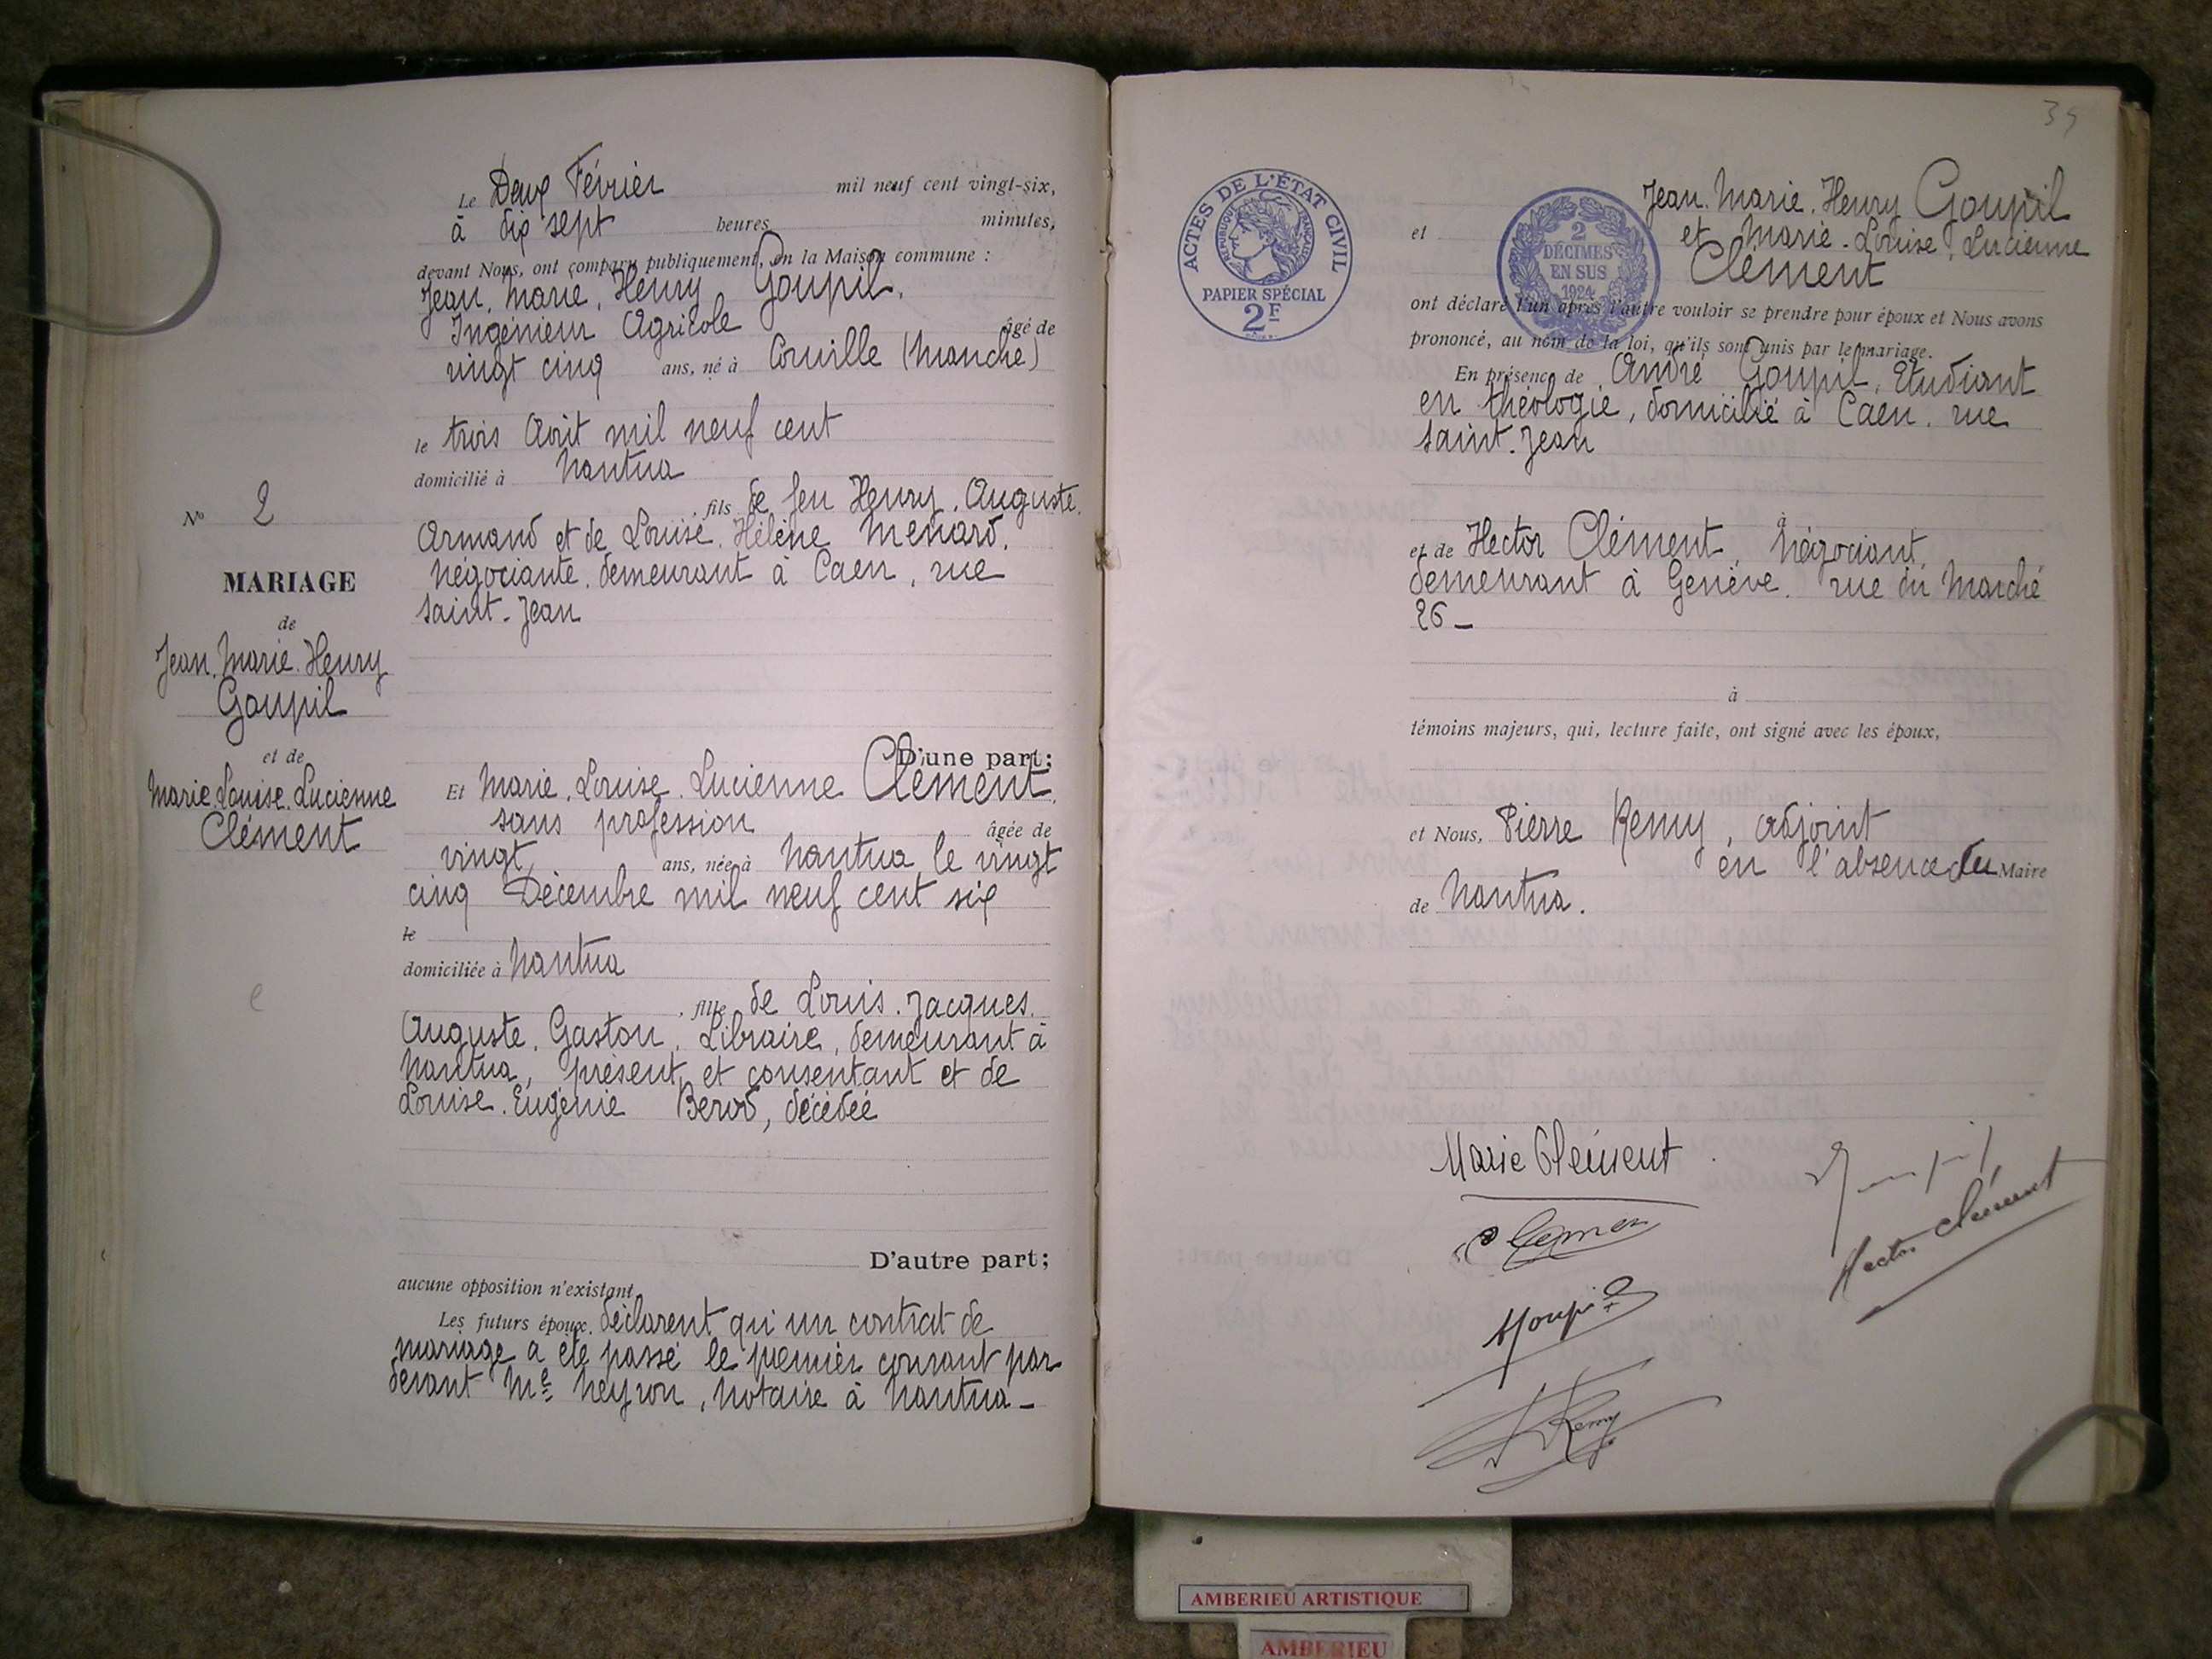 Le Deux Février mil neuf cent vingt-six,
à dix sept heures minutes,
devant Nous, ont comparu publiquement, en la Maison commune :
Jean. Marie. Henry Goupil,
Ingénieur Agricole âgé de
vingt cinq ans, né à (Manche)
le trois Août mil neuf cent
domicilié à Nantua
, fils de feu Henry. Auguste.
Armand et de Louise. Hélène Menard.
négociante. demeurant à Caen, rue
saint-Jean
D'une part;
Nº 2
MARIAGE
de
Jean. Marie. Henry
Goupil
et de
Marie. Louise. Lucienne
Clément
Et Marie. Louise. Lucienne Clément,
sans profession âgée de
vingt ans, née à Nantua le vingt
cinq Décembre mil neuf cent six
le
domiciliée à Nantua
, fille de Louis. Jacques.
Auguste. Gaston, Libraire, demeurant à
Nantua, présent et consentant et de
Louise. Eugénie Berod, décédée
D'autre part;
aucune opposition n'existant
Les futurs époux déclarent qu'un contrat de
mariage a été passé le premier courant par
devant Me Neyron, notaire à Nantua_
39
ACTES DE L'ÉTAT CIVIL
RÉPUBLIQUE FRANÇAISE
PAPIER SPÉCIAL
2F
2
DÉCIMES
EN SUS
1924
Jean. Marie. Henry Goupil
et et Marie. Louise. Lucienne
Clément
ont déclaré l'un après l'autre vouloir se prendre pour époux et Nous avons
prononcé, au nom de la loi, qu'ils sont unis par le mariage.
En présence de André Goupil, Etudiant
en théologie, domicilié à Caen. rue
saint-Jean
et de Hector Clément, négociant,
demeurant à Genève. rue du Marché
26_
à
témoins majeurs, qui, lecture faite, ont signé avec les époux,
et Nous, Pierre Remy, adjoint
en l'absence du Maire
de Nantua.
Marie Clément
Goupil
Hector Clément
Clement
Goupil
Remy
AMBERIEU ARTISTIQUE
AMBERIEU